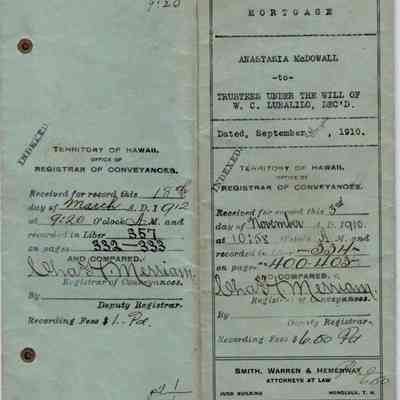 9:20
INDEXED
TERRITORY OF HAWAII.
OFFICE OF
REGISTRAR OF CONVEYANCES.
Received for record this 18th
day of March A.D. 1912
at 9:20 O'clock A.M. and
recorded in Liber 357
on pages 332-333
AND COMPARED.
Chas. H. Merriam
Registrar of Conveyances.
By
Deputy Registrar.
Recording Fees $1.- Pd.
MORTGAGE
ANASTASIA McDOWALL
-to-
TRUSTEES UNDER THE WILL OF
W. C. LUNALILO, DEC'D.
Dated, September , 1910.
INDEXED
TERRITORY OF HAWAII.
OFFICE OF
REGISTRAR OF CONVEYANCES.
Received for record this 3rd
day of November A.D. 1910.
at 10:58 O'clock A.M. and
recorded in Liber 334
on pages 400-403
AND COMPARED.
Chas. H. Merriam
Registrar of Conveyances.
By
Deputy Registrar.
Recording Fees $6.00 Pd
SMITH, WARREN & HEMENWAY
ATTORNEYS AT LAW
JUDD BUILDING HONOLULU, T. H.